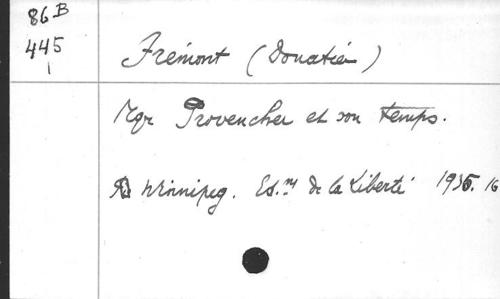 86 B
445
1
Frémont (Donatien)
Mgr Provencher et son temps.
Winnipeg. Ed.ns de la Liberté 1935. 16